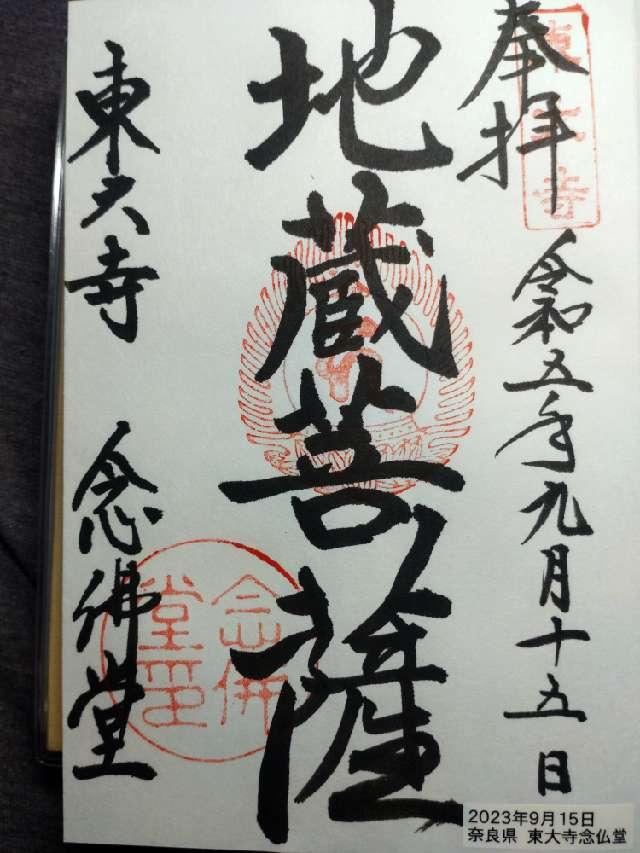 奉拝
令和五年九月十五日
地蔵菩薩
東大寺 念佛堂
東大寺
念佛堂印
2023年9月15日
奈良県 東大寺念仏堂